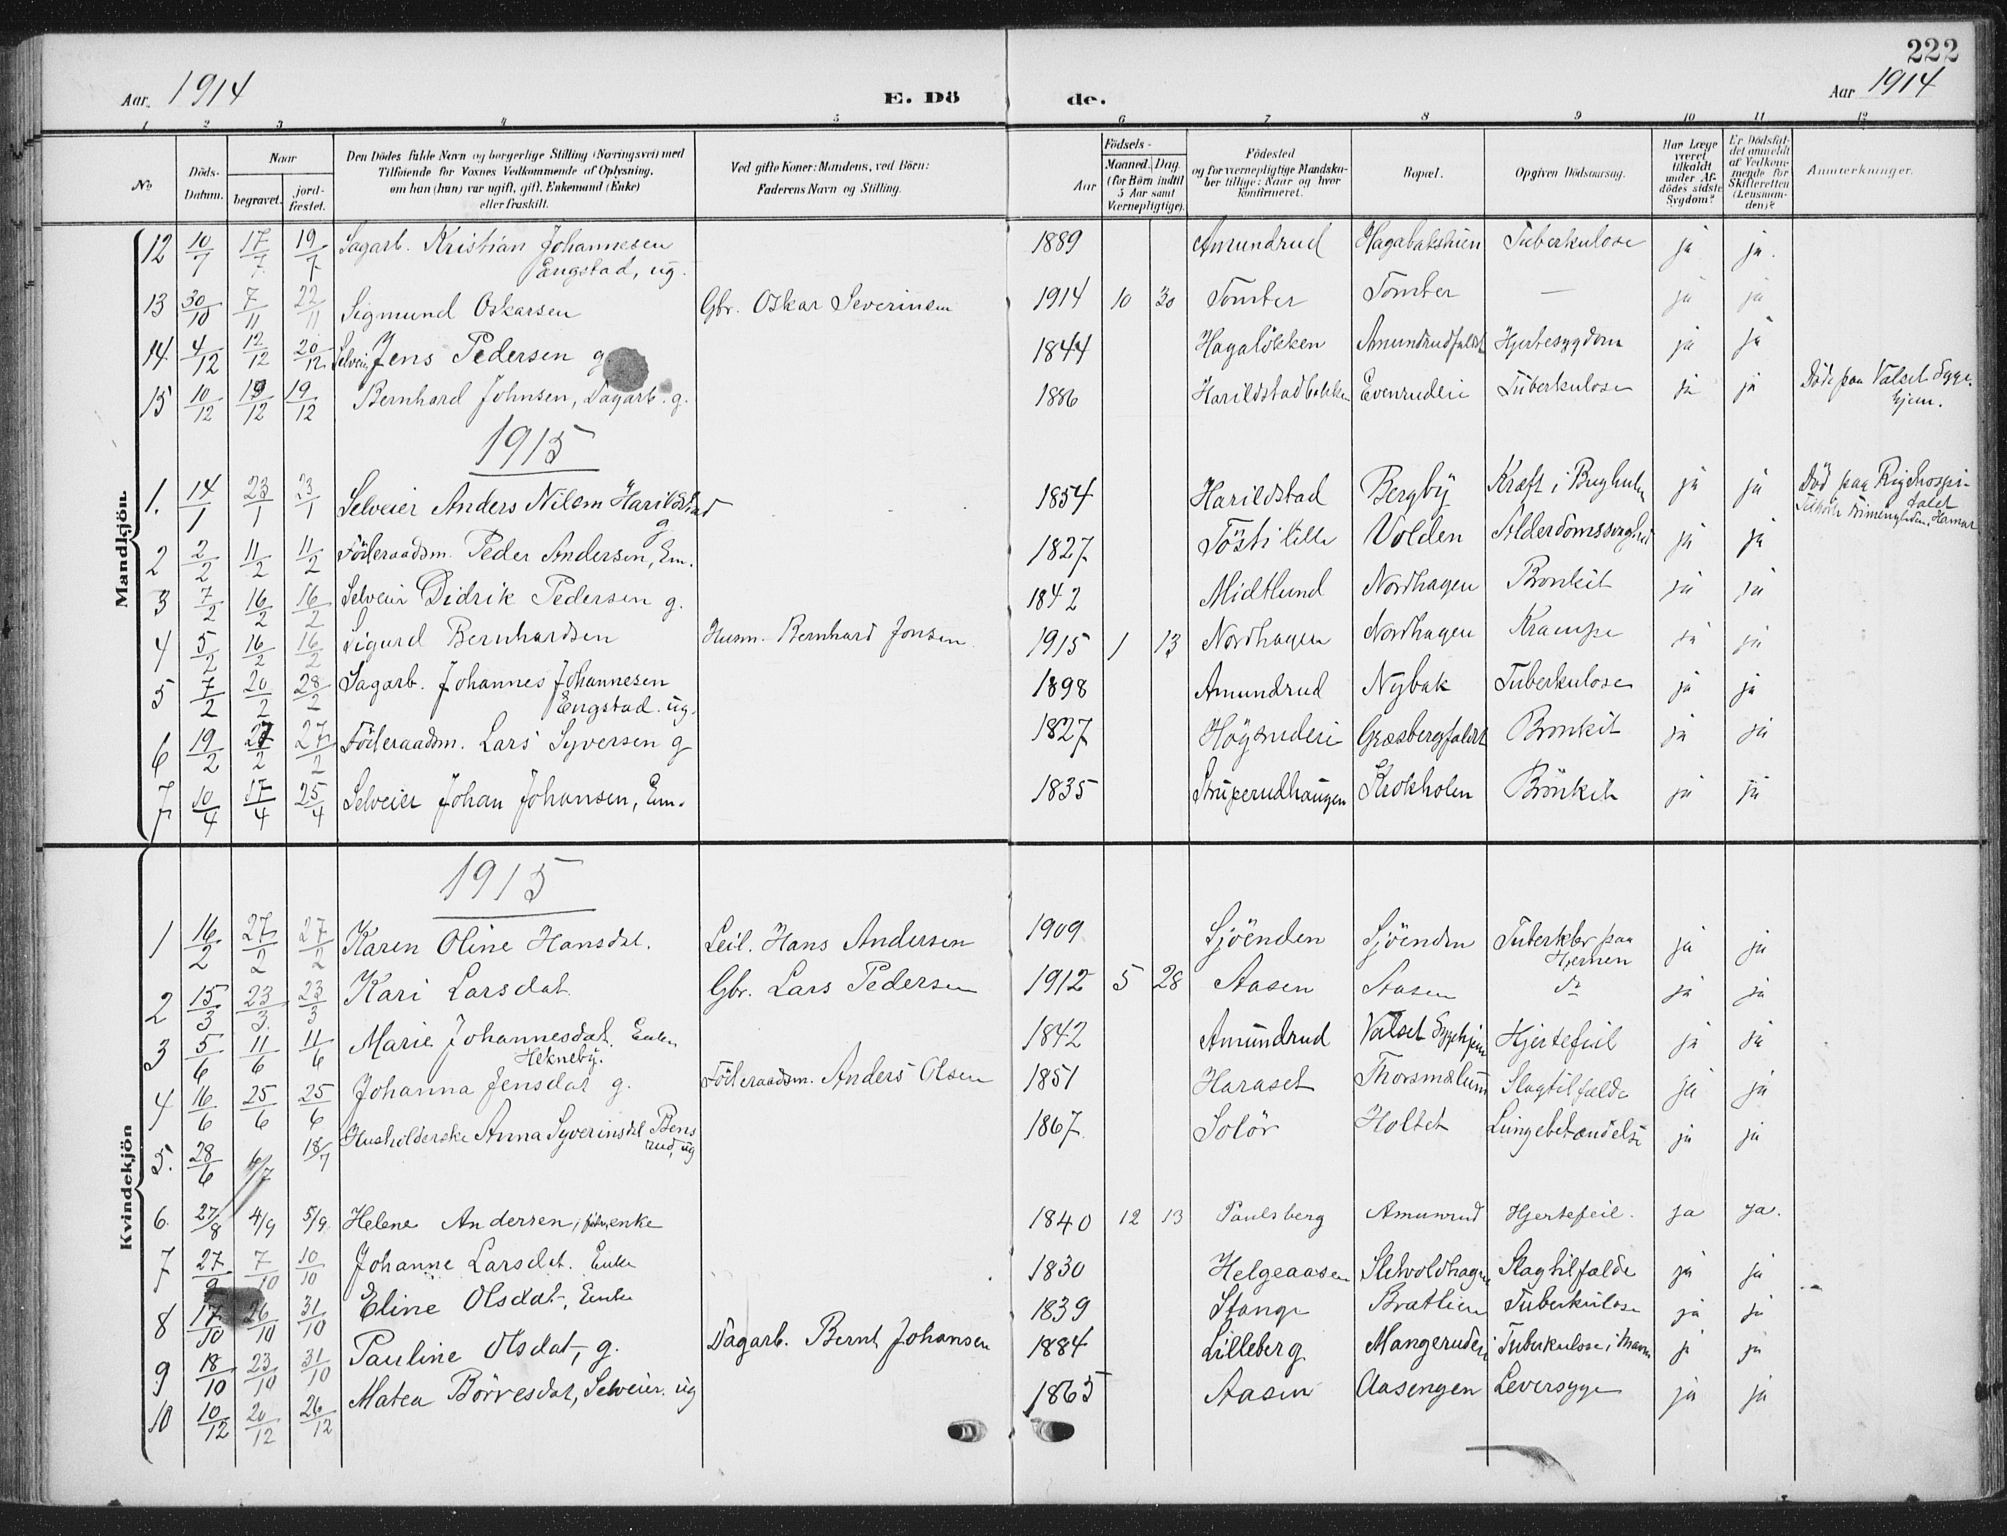 222
Aar. 1914 E. Dö de. Aar 1914
1 2 3 4 5 6 7 8 9 10 11 12
No Döds-Datum. Naar begravet. jord-fæstet. Den Dödes fulde Navn og borgerlige Stilling (Næringsvei) med Tilföiende for Voxnes Vedkommende af Oplysning, om han (hun) var ugift, gift, Enkemand (Enke) eller fraskilt. Ved gifte Koner: Mandens, ved Börn: Faderens Navn og Stilling. Födsels- Aar Maaned. Dag. (for Börn indtil 5 Aar samt Værnepligtige). Födested og for værnepligtige Mandskaber tillige: Naar og hvor konfirmeret. Bopæl. Opgiven Dödsaarsag. Har Læge været tilkaldt under Afdödes sidste Sygdom? Er Dödsfaldet anmeldt af Vedkommende for Skifteretten (Lensmanden)? Anmerkninger.
Mandkjön.
12 10/7 17/7 19/7 Sagarb. Kristian Johannesen 1889 Amundrud Hagabakstuen Tuberkulose ja ja.
Engstad, ug.
13 30/10 7/11 22/11 Sigmund Oskarsen Gbr. Oskar Severinsen 1914 10 30 Tomter Tomter — ja ja
14 4/12 12/12 20/12 Selveier Jens Pedersen g 1844 Hagalökken Amundrudfaldet Hjertesygdom ja ja
15 10/12 19/12 19/12 Bernhard Johnsen, Dagarb. g. 1886 Harildstadbakken Evenruderi Tuberkulose ja ja Döde paa Valset Syge-
hjem.
1915
1. 14/1 23/1 23/1 Selveier Anders Nilsen Harildstad 1854 Harildstad Bergby Kræft i Bughulen ja ja Död paa Righospi-
g talet
Hamar
2 2/2 11/2 11/2 Föderaadsm. Peder Andersen, Em. 1827 Volden Alderdomssvaghed ja ja
3 7/2 16/2 16/2 Selveier Didrik Pedersen g. 1842 Midtlund Nordhagen Bronkit ja ja
4 5/2 16/2 16/2 Sigurd Bernhardsen Husm. Bernhard Jonsen 1915 1 13 Nordhagen Nordhagen Krampe ja ja
5 7/2 20/2 28/2 Sagarb. Johannes Johannesen 1898 Amundrud Nybak Tuberkulose ja ja
Engstad. ug.
6 19/2 27/2 27/2 Föderaadsm. Lars Syversen g 1827 Högsruderi Græsbergfaldet Bronkit ja ja
7 10/4 17/4 25/4 Selveier Johan Johansen, Em. 1835 Struperudhaugen Krokholen Brönkit ja ja
Kvindekjön
1915
1 16/2 27/2 27/2 Karen Oline Hansdat. Leil. Hans Andersen 1909 Sjöenden Sjöenden Tuberkler paa ja ja
Hjernen
2 15/3 23/3. 23/3 Kari Larsdat. Gbr. Lars Pedersen 1912 5 28 Aasen Aasen do ja ja
3 5/6 11/6 11/6 Marie Johannesdat. Enke 1842 Amundrud Valset Sygehjem Hjertefeil ja ja
Hekneby.
4 16/6 25/6 25/6 Johanna Jensdat g. Föderaadsm. Anders Olsen 1851 Haraset Thorsmælum Slagtilfælde ja ja
5. 28/6 6/7 18/7 Husholderske Anna Syverinsdtl Bens 1867 Solör Holtet Lungebetændelse ja ja
rud, ug
6. 27/8 4/9 5/9. Helene Andersen, enke 1840 12 13 Paulsberg Amunrud Hjertefeil. ja ja.
7 27/9 7/10 10/10 Johanne Larsdat. Enke 1830 Helgeaasen Sletvoldhagen Slagtilfælde ja ja
8 17/10 26/10 31/10 Eline Olsdat, Enke 1839 Stange Bratlien Tuberkulose ja ja
9 18/10 23/10 31/10 Pauline Olsdat, g. Dagarb. Bernt Johansen 1884 Lilleberg Mangeruderi Tuberkulose i Maven ja ja
10 10/12 20/12 26/12 Matea Börresdat, Selveier. ug 1865 Aasen Aasengen Leversyge ja ja